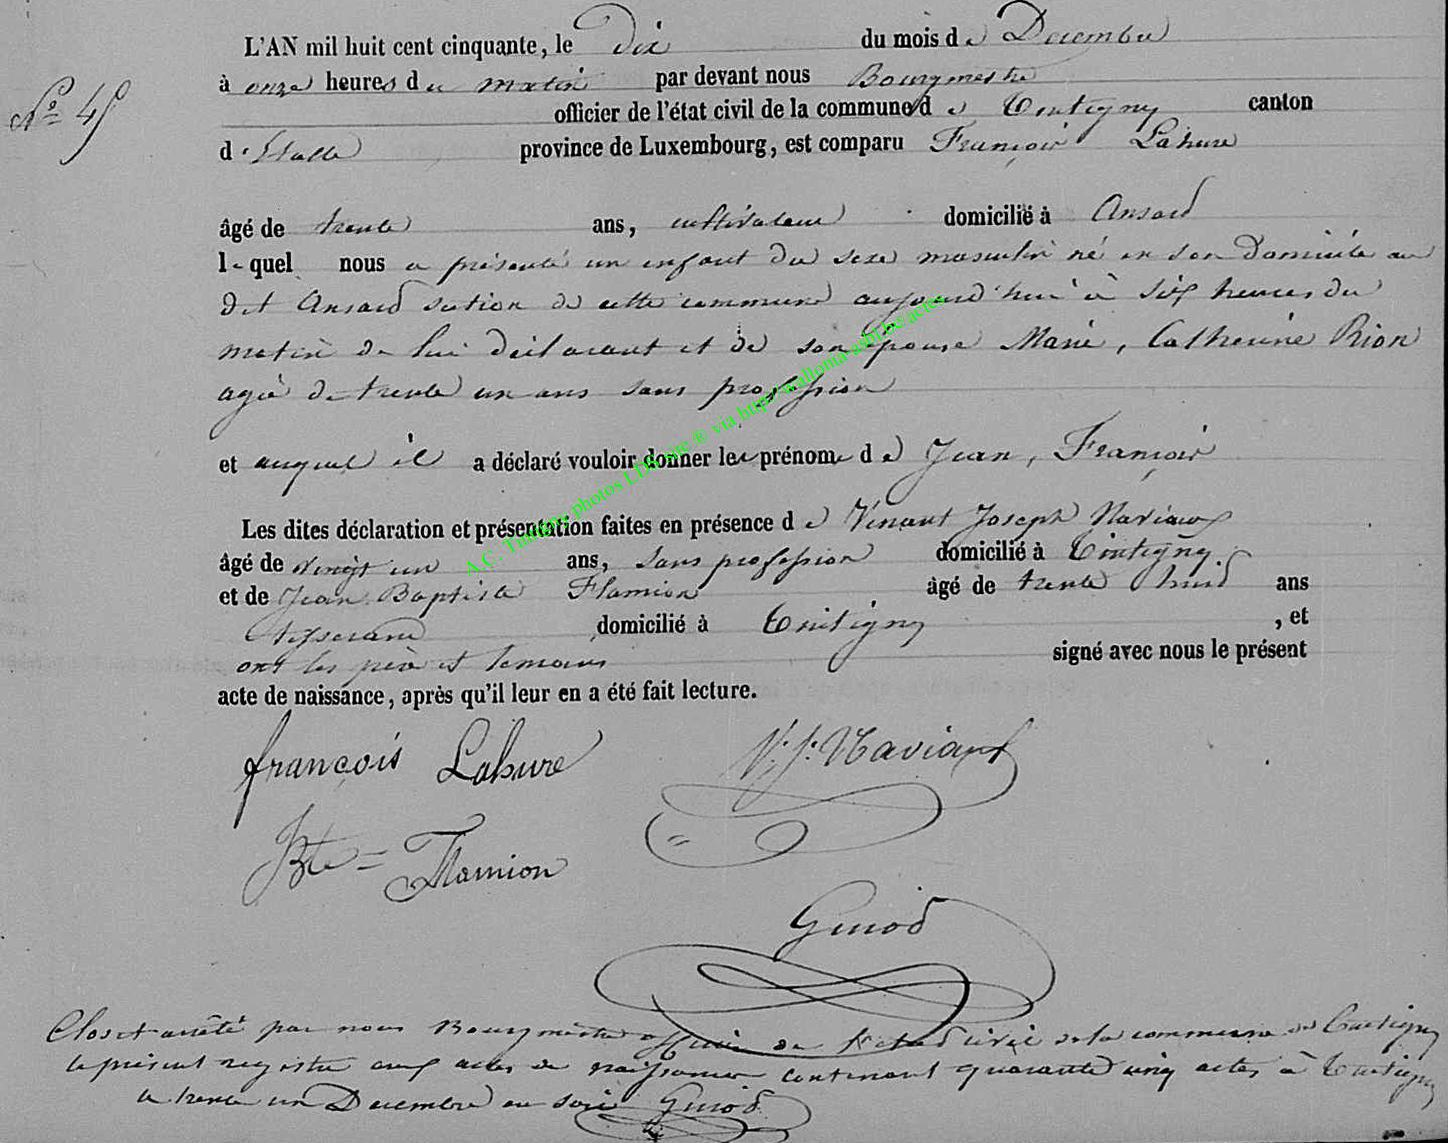 L'AN mil huit cent cinquante, le dix du mois de Décembre
N° 45
à onze heures du matin par devant nous Bourgmestre
officier de l'état civil de la commune de Tintigny canton
d'Etalle province de Luxembourg, est comparu François Lahure
âgé de trente ans, cultivateur domicilié à Ansard
lequel nous a présenté un enfant du sexe masculin né en son domicile au
dit Ansard section de cette commune aujourd'hui à six heures du
matin de lui déclarant et de son épouse Marie, Catherine Rion
agée de trente un ans sans profession
et auquel il a déclaré vouloir donner les prénoms de Jean, François
Les dites déclaration et présentation faites en présence de Vinant Joseph Naviaux
âgé de vingt un ans, sans profession domicilié à Tintigny
et de Jean Baptiste Flamion âgé de trente huit ans
tisserand domicilié à Tintigny, et
ont les père et temoins signé avec nous le présent
acte de naissance, après qu'il leur en a été fait lecture.
françois Lahure V. J. Naviaux
JBte = Flamion
Guiod
Clos et arrêté par nous Bourgmestre officier de l'état civil de la commune de Tintigny
le présent registre aux actes de naissances contenant quarante cinq actes à Tintigny
le trente un Décembre au soir Guiod
A.C. Tintigny photos via http://wallonia-asbl.be/actes